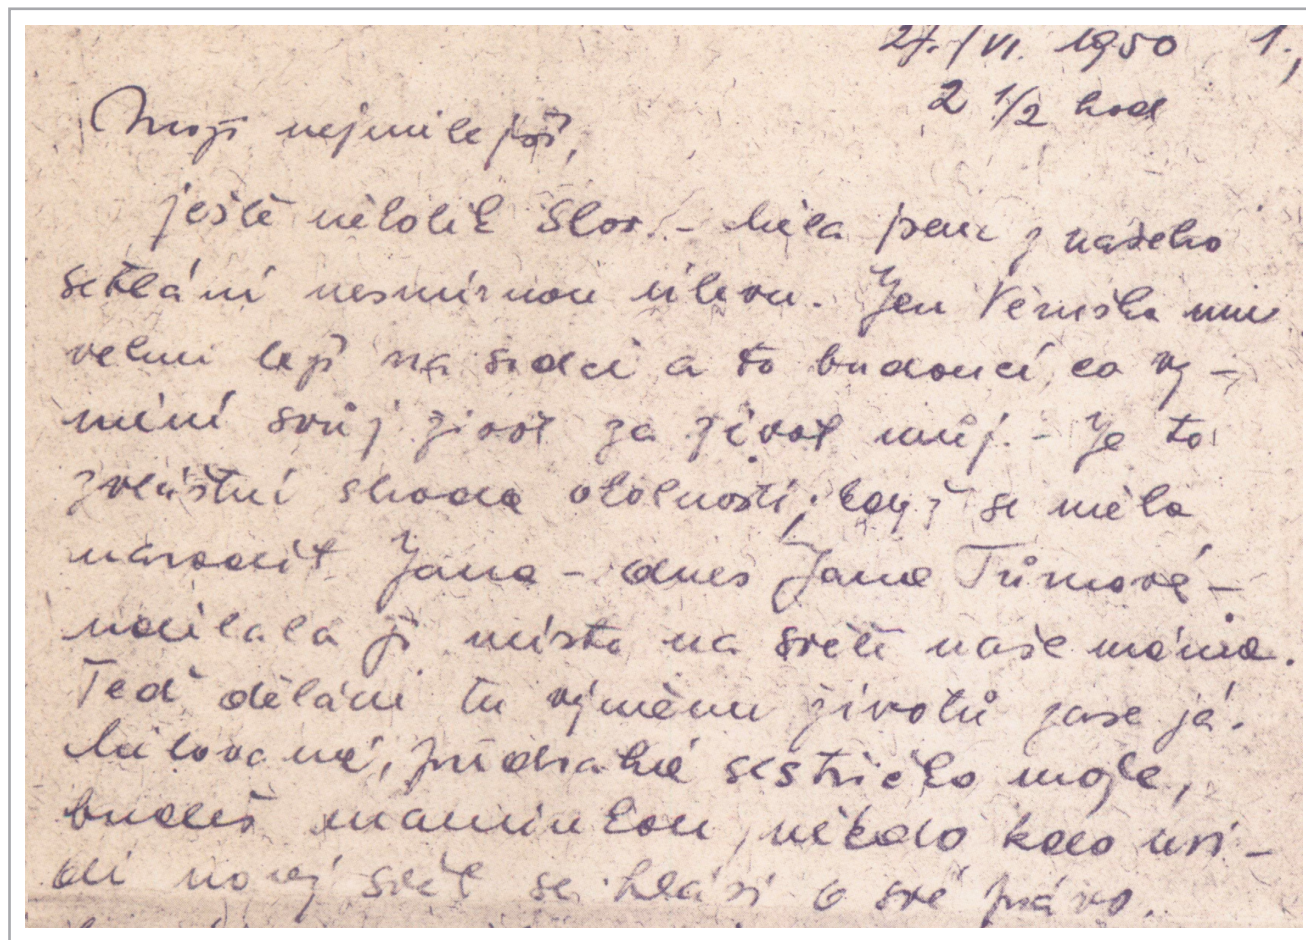 27./VI. 1950 1.,
2 1/2 hod
Moji nejmilejší,
ještě několik slov. – Měla jsem z našeho
setkání nesmírnou úlevu. Jen Věruška mi
velmi leží na srdci a to budoucí, co vy-
mění svůj život za život můj. – Je to
zvláštní shoda okolností; když se měla
narodit Jana – dnes Jana Tůmová –
udělala jí místo na světě naše máma.
Teď dělám tu výměnu životů zase já.
Milovaná, předrahá sestřičko moje,
budeš maminkou, někdo kdo uvi-
dí nový svět se hlásí o své právo.